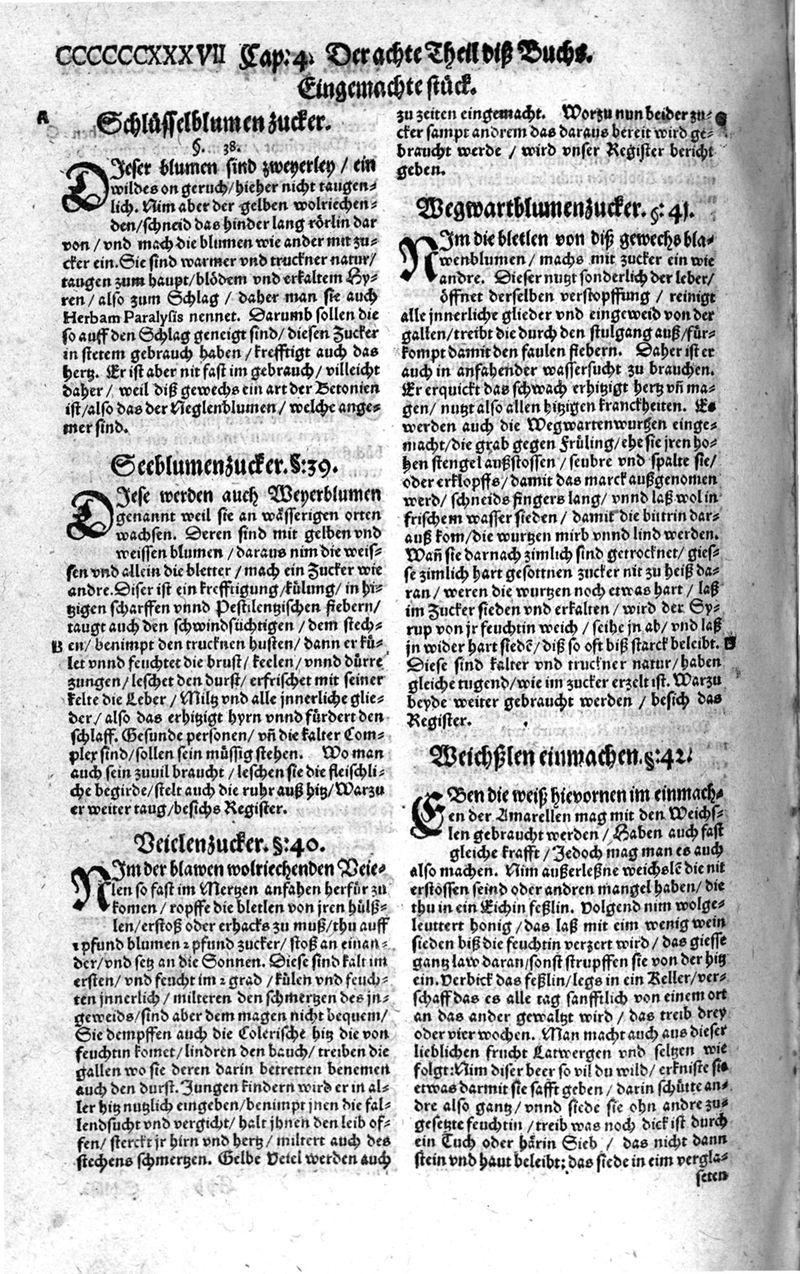 CCCCCCCXXXVII Cap: 4. Der achte Theil diß Buchs.
Eingemachte stück.
A
Schlüsselblumen zucker.
§. 38.
DJeser blumen sind zweyerley / ein
wildes on geruch / hieher nicht taugen-
lich. Nim aber der gelben wolriechen-
den / schneid das hinder lang rörlin dar
von / vnd mach die blumen wie ander mit zu-
cker ein. Sie sind warmer vnd truckner natur /
taugen zum haupt / blödem vnd erkaltem Hy-
ren / also zum Schlag / daher man sie auch
Herbam Paralysis nennet. Darumb sollen die
so auff den Schlag geneigt sind / diesen Zucker
in stetem gebrauch haben / krefftigt auch das
hertz. Er ist aber nit fast im gebrauch / villeicht
daher / weil diß gewechs ein art der Betonien
ist / also das der Neglenblumen / welche ange-
mer sind.
Seeblumenzucker. §: 39.
DJese werden auch Weyerblumen
genannt weil sie an wässerigen orten
wachsen. Deren sind mit gelben vnd
weissen blumen / daraus nim die weis-
sen vnd allein die bletter / mach ein Zucker wie
andre. Diser ist ein krefftigung / külung / in hi-
tzigen scharffen vnnd Pestilentzischen fiebern /
taugt auch den schwindsüchtigen / dem stech-
B en / benimpt den trucknen husten / dann er kü-
let vnnd feuchtet die brust / keelen / vnnd dürre
zungen / leschet den durst / erfrischet mit seiner
kelte die Leber / Miltz vnd alle jnnerliche glie-
der / also das erhitzigt hyrn vnnd fürdert den
schlaff. Gesunde personen / vñ die kalter Com-
plex sind / sollen sein müssig stehen. Wo man
auch sein zuuil braucht / leschen sie die fleischli-
che begirde / stelt auch die ruhr auß hitz / Warzu
er weiter taug / besichs Register.
Veielenzucker. §: 40.
NJm der blawen wolriechenden Veie-
len so fast im Mertzen anfahen herfür zu
komen / ropffe die bletlen von jren hülß-
len / erstoß oder erhacks zu muß / thu auff
1 pfund blumen 2 pfund zucker / stoß an einan-
der / vnd setz an die Sonnen. Diese sind kalt im
ersten / vnd feucht im 2 grad / külen vnd feuch-
ten jnnerlich / milteren den schmertzen des jn-
geweids / sind aber dem magen nicht bequem /
Sie dempffen auch die Colerische hitz die von
feuchtin komet / lindren den bauch / treiben die
gallen wo sie deren darin betretten benemen
auch den durst. Jungen kindern wird er in al-
ler hitz nutzlich eingeben / benimpt jnen die fal-
lendsucht vnd vergicht / halt jhnen den leib of-
fen / sterckt jr hirn vnd hertz / miltert auch des
stechens schmertzen. Gelbe Veiel werden auch
zu zeiten eingemacht. Worzu nun beider zu-
cker sampt andrem das daraus bereit wird ge-
braucht werde / wird vnser Register bericht
geben.
Wegwartblumenzucker. §: 41.
NJm die bletlen von diß gewechs bla-
wenblumen / machs mit zucker ein wie
andre. Dieser nutzt sonderlich der leber /
öffnet derselben verstopffung / reinigt
alle jnnerliche glieder vnd eingeweid von der
gallen / treibt die durch den stulgang auß / für-
kompt damit den faulen fiebern. Daher ist er
auch in anfahender wassersucht zu brauchen.
Er erquickt das schwach erhitzigt hertz vñ ma-
gen / nutzt also allen hitzigen kranckheiten. Es
werden auch die Wegwartenwurtzen einge-
macht / die grab gegen Früling / ehe sie jren ho-
hen stengel außstossen / seubre vnd spalte sie /
oder erklopffs / damit das marck außgenomen
werd / schneids fingers lang / vnnd laß wol in
frischem wasser sieden / damit die bittrin dar-
auß kom / die wurtzen mirb vnnd lind werden.
Wañ sie darnach zimlich sind getrocknet / gies-
se zimlich hart gesottnen zucker nit zu heiß da-
ran / weren die wurtzen noch etwas hart / laß
im Zucker sieden vnd erkalten / wird der Sy-
rup von jr feuchtin weich / seihe jn ab / vnd laß
jn wider hart siedẽ / diß so oft biß starck beleibt. B
Diese sind kalter vnd truckner natur / haben
gleiche tugend / wie im zucker erzelt ist. Warzu
beyde weiter gebraucht werden / besich das
Register.
Weichßlen einmachen. §: 42.
EBen die weiß hievornen im einmach-
en der Amarellen mag mit den Weichs-
len gebraucht werden / Haben auch fast
gleiche krafft / Jedoch mag man es auch
also machen. Nim außerleßne weichslẽ die nit
erstössen seind oder andren mangel haben / die
thu in ein Eichin feßlin. Volgend nim wolge-
leuttert honig / das laß mit em wenig wein
sieden biß die feuchtin verzert wird / das giesse
gantz law daran / sonst strupffen sie von der hitz
ein. Verbick das feßlin / legs in ein Keller / ver-
schaff das es alle tag sanfftlich von einem ort
an das ander gewaltzt wird / das treib drey
oder vier wochen. Man macht auch aus dieser
lieblichen frucht Latwergen vnd seltzen wie
folgt: Nim diser beer so vil du wild / erkniste sie
etwas darmit sie safft geben / darin schütte an-
dre also gantz / vnnd siede sie ohn andre zu-
gesetzte feuchtin / treib was noch dick ist durch
ein Tuch oder härin Sieb / das nicht dann
stein vnd haut beleibt; das siede in eim vergla-
seten